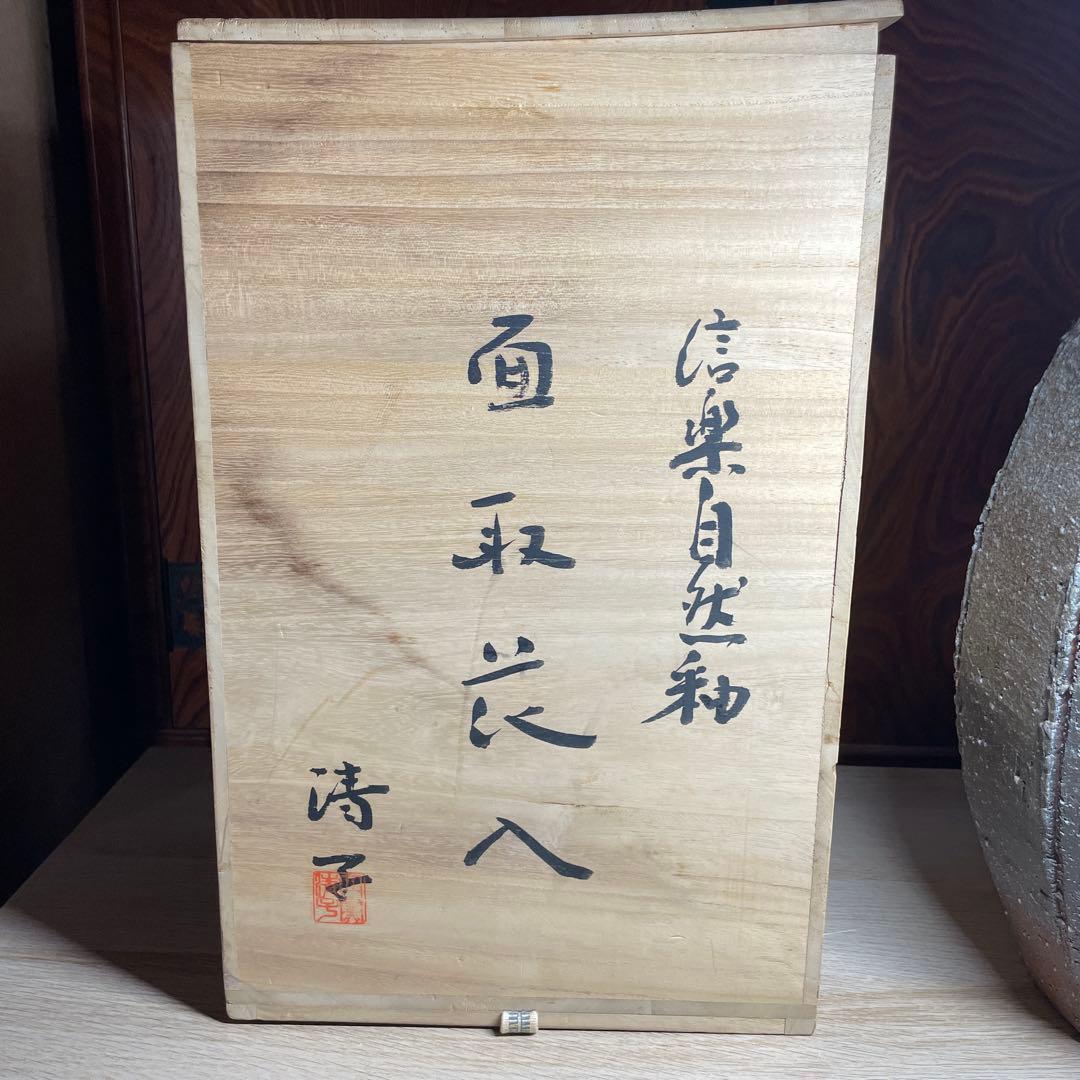 信楽自然釉
面取花入
清子